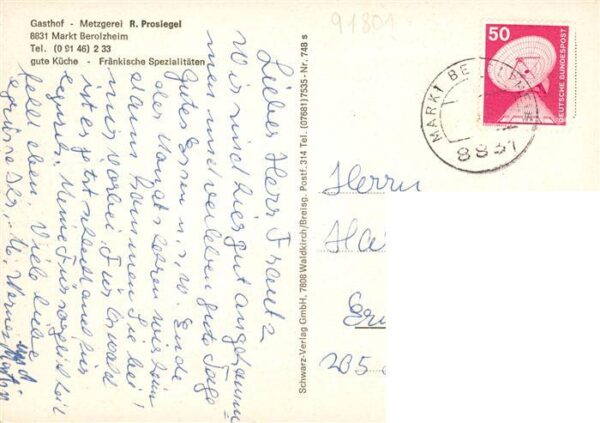 Gasthof - Metzgerei R. Prosiegel
8831 Markt Berolzheim
Tel. (0 91 46) 2 33
gute Küche - Fränkische Spezialitäten
91801
50
DEUTSCHE BUNDESPOST
MARKT BE
8831
Schwarz-Verlag GmbH, 7808 Waldkirch/Breisg. Postf. 314 Tel. (07681) 7535 - Nr. 748 s
Lieber Herr Frantz
Wir sind hier gut angekommen
und verleben gute Tage
gutes Essen u.s.w. Ende
des Monats kehren wir heim
dann kommen Sie bei
uns vorbei. Für Oswald
ist es jetzt
gesund. Meine Fürsorglichkeit
Viele liebe
Grüsse Ihr, M. Werner
und Martin
Herrn
Ha
Er
205